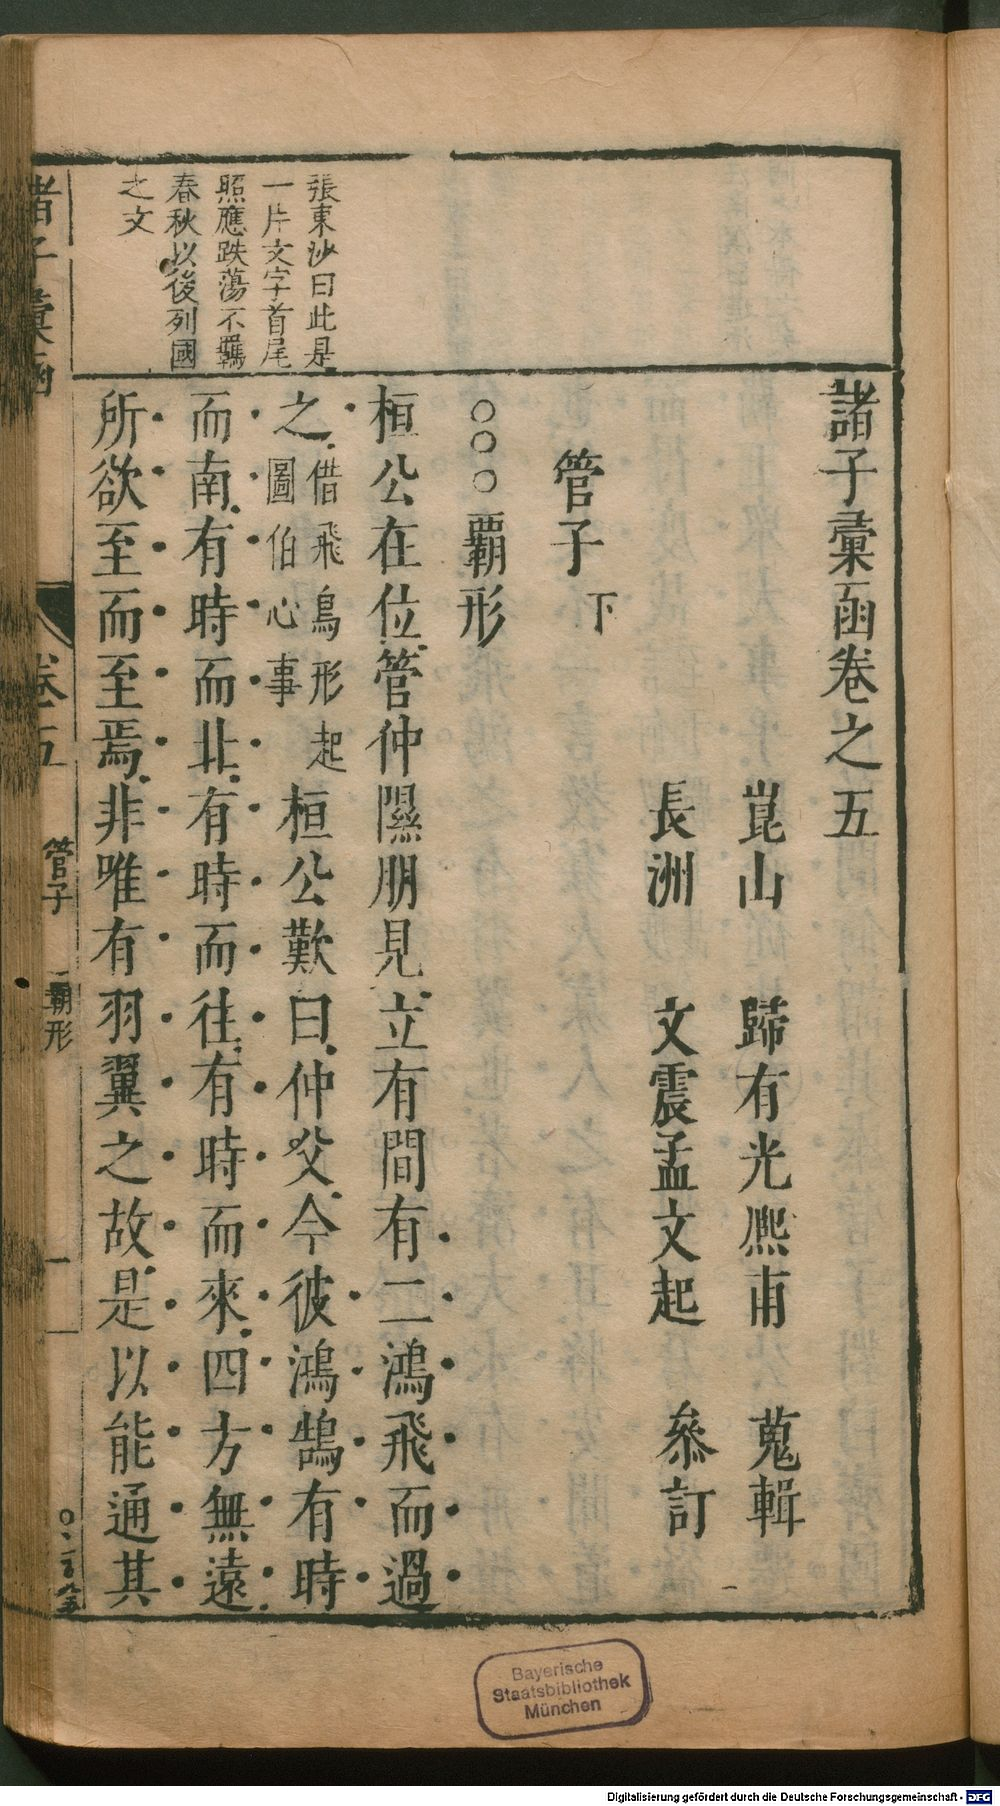 諸子彙函卷之五
崑山 歸有光熈甫 蒐輯
長洲 文震孟文起 叅訂
管子下
○○○覇形
桓公在位管仲隰朋見立有間有二鴻飛而過
之借飛鳥形起圖伯心事桓公歎曰仲父今彼鴻鵠有時
而南有時而北有時而往有時而來四方無遠
所欲至而至焉非唯有羽翼之故是以能通其
張東沙曰此是
一片文字首尾
照應跌蕩不羈
春秋以後列國
之文
諸子彙函
卷五
管子
覇形
一
Bayerische
Staatsbibliothek
München
Digitalisierung gefördert durch die Deutsche Forschungsgemeinschaft - DFG